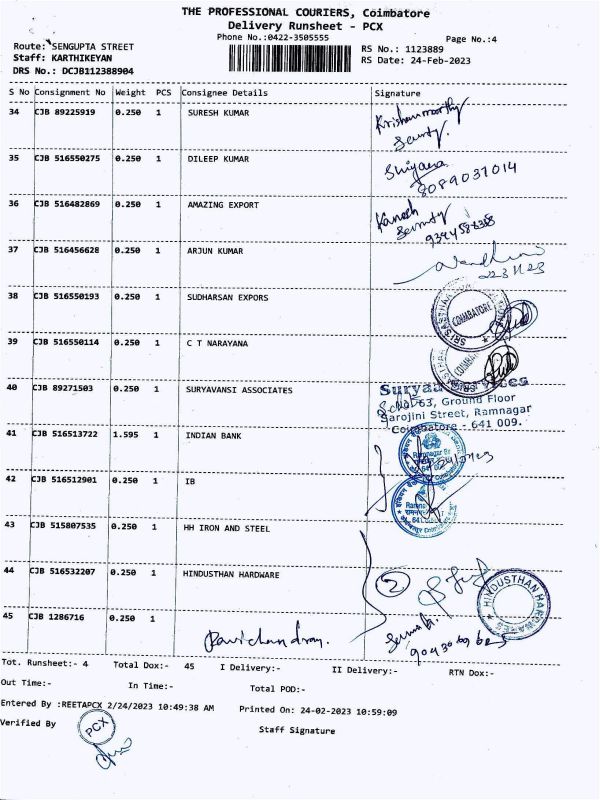 THE PROFESSIONAL COURIERS, Coimbatore
Delivery Runsheet - PCX
Phone No.:0422-3505555
Page No.:4
Route: SENGUPTA STREET
RS No.: 1123889
Staff: KARTHIKEYAN
RS Date: 24-Feb-2023
DRS No.: DCJB112388904
S No Consignment No Weight PCS Consignee Details Signature
34 CJB 89225919 0.250 1 SURESH KUMAR
Krishnamoorthy
Security.
35 CJB 516550275 0.250 1 DILEEP KUMAR
8089031014
36 CJB 516482869 0.250 1 AMAZING EXPORT
Kanesh
Security
37 CJB 516456628 0.250 1 ARJUN KUMAR
38 CJB 516550193 0.250 1 SUDHARSAN EXPORS
COIMBATORE
39 CJB 516550114 0.250 1 C T NARAYANA
40 CJB 89271503 0.250 1 SURYAVANSI ASSOCIATES
63, Ground Floor
Sarojini Street, Ramnagar
Coimbatore - 641 009.
41 CJB 516513722 1.595 1 INDIAN BANK
Ramnagar Br
42 CJB 516512901 0.250 1 IB
43 CJB 515807535 0.250 1 HH IRON AND STEEL
44 CJB 516532207 0.250 1 HINDUSTHAN HARDWARE
2
HINDUSTHAN HARDWARES
45 CJB 1286716 0.250 1
Ravichandran.
Tot. Runsheet:- 4 Total Dox:- 45 I Delivery:- II Delivery:- RTN Dox:-
Out Time:- In Time:- Total POD:-
Entered By :REETAPCX 2/24/2023 10:49:38 AM Printed On: 24-02-2023 10:59:09
Verified By
PCX
Staff Signature